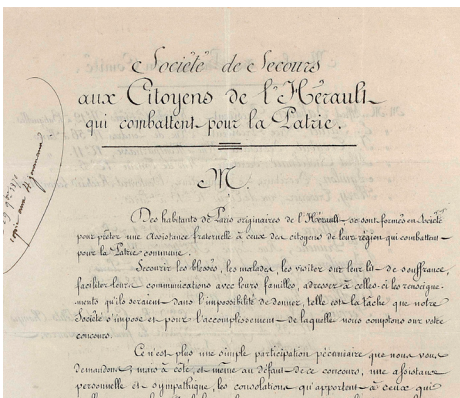 Société de Secours
aux Citoyens de l'Hérault
qui combattent pour la Patrie.
M.
Des habitants de Paris originaires de l'Hérault se sont formés en Société
pour prêter une assistance fraternelle à ceux des citoyens de leur région qui combattent
pour la Patrie commune.
Secourir les blessés, les malades, les visiter sur leur lit de souffrance,
faciliter leurs communications avec leurs familles, adresser à celles-ci les renseigne-
ments qu'ils seraient dans l'impossibilité de donner, telle est la tâche que notre
Société s'impose et pour l'accomplissement de laquelle nous comptons sur votre
concours.
Ce n'est plus une simple participation pécuniaire que nous vous
demandons; mais à côté, et même au défaut de ce concours, une assistance
personnelle et sympathique, les consolations qu'apportent à ceux qui